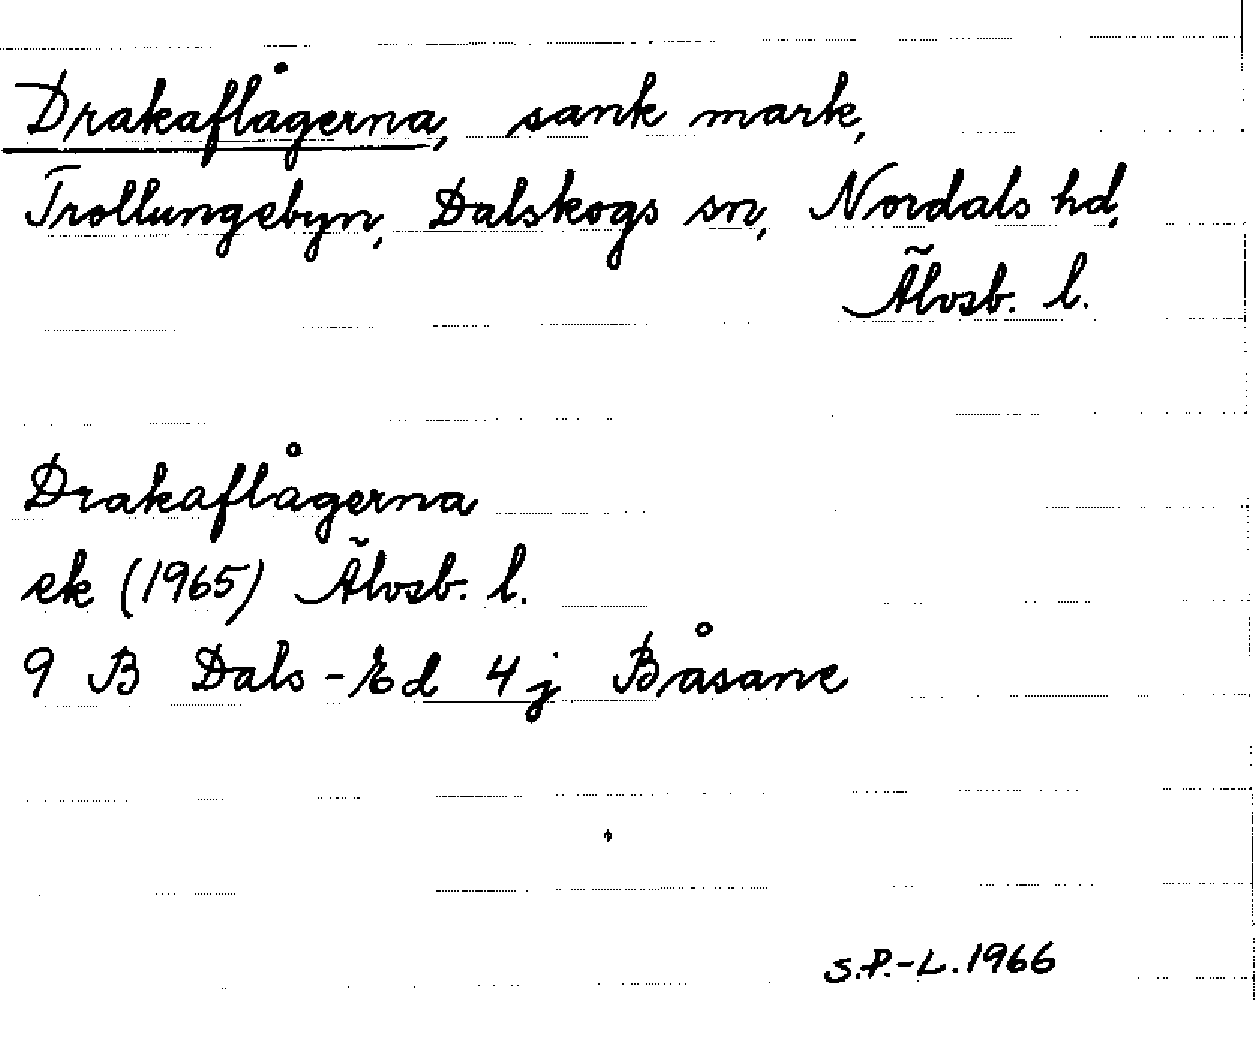 Drakaflågerna, sank mark,
Trollungebyn, Dalskogs sn, Nordals hd,
Älvsb. l.
Drakaflågerna
ek (1965) Älvsb. l.
9 B Dals-Ed 4j Båsane
S.P.-L. 1966